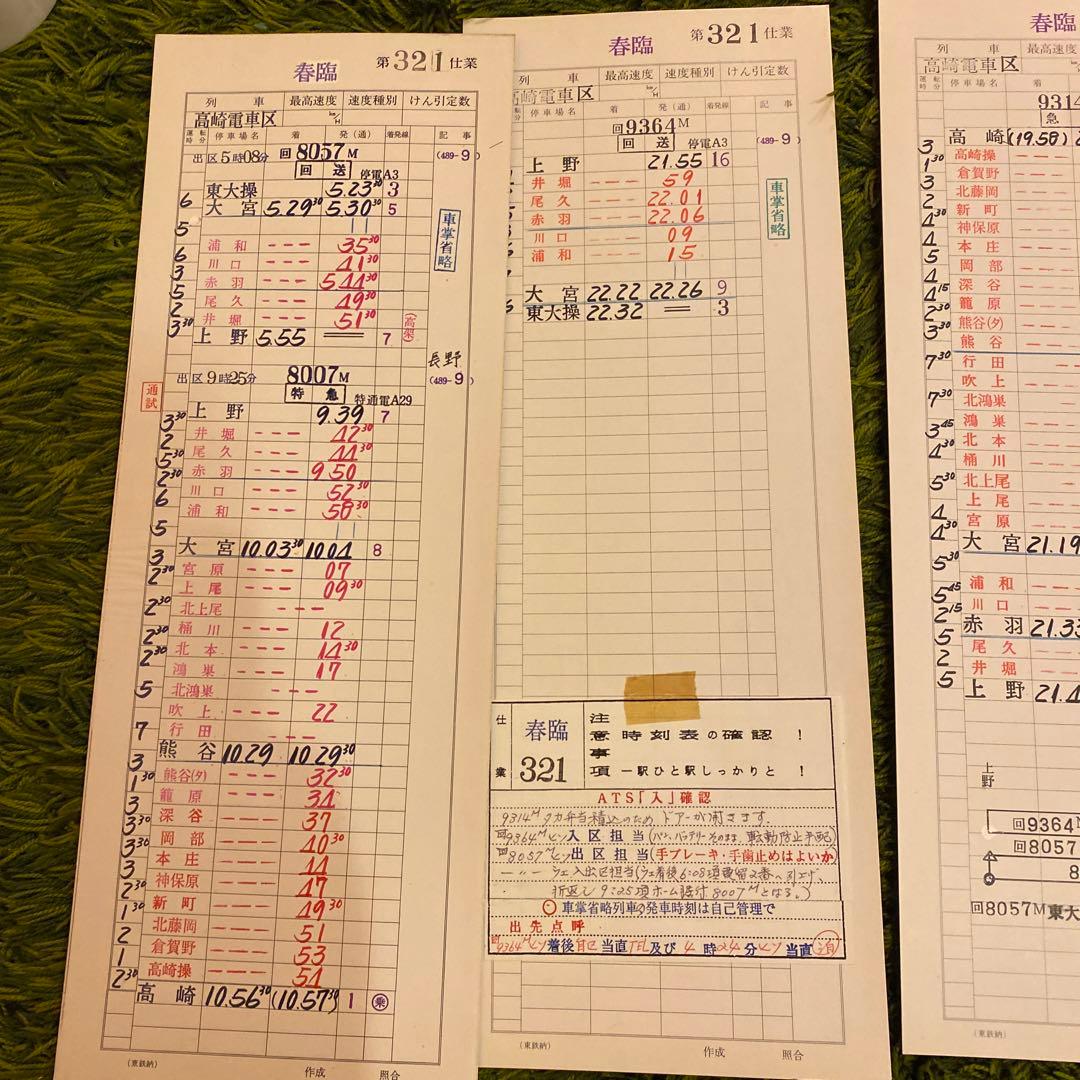 春臨 第321仕業
列車 最高速度 速度種別 けん引定数
高崎電車区 km/H
運転時分 停車場名 着 発(通) 着発線 記事
出区5時08分 回8057M (489-9)
回送 停電A3
東大操 5.23³⁰ 3
6 大宮 5.29³⁰ 5.30³⁰ 5
車掌省略
5
浦和 --- 35³⁰
6 川口 --- 41³⁰
3 赤羽 --- 5.44³⁰
5 尾久 --- 49³⁰
2 井堀 --- 51³⁰ (高架)
3³⁰ 上野 5.55 == 7
長野
出区9時25分 8007M (489-9)
通試 特急 特通電A29
上野 9.39 7
3³⁰ 井堀 --- 42³⁰
2 尾久 --- 44³⁰
5³⁰ 赤羽 --- 9.50
2³⁰ 川口 --- 52³⁰
6 浦和 --- 58³⁰
5
大宮 10.03³⁰ 10.04 8
3 宮原 --- 07
2³⁰ 上尾 --- 09³⁰
北上尾 ---
2³⁰ 桶川 --- 12
2³⁰ 北本 --- 14³⁰
2³⁰ 鴻巣 --- 17
北鴻巣 ---
5 吹上 --- 22
行田 ---
7 熊谷 10.29 10.29³⁰
3 熊谷(タ) --- 32³⁰
1³⁰ 籠原 --- 34
3 深谷 --- 37
3³⁰ 岡部 --- 40³⁰
3³⁰ 本庄 --- 44
3 神保原 --- 47
2³⁰ 新町 --- 49³⁰
1³⁰ 北藤岡 --- 51
2 倉賀野 --- 53
1 高崎操 --- 54
2³⁰ 高崎 10.56³⁰ (10.57³⁰) 1 乗
(東鉄納) 作成 照合
春臨 第321仕業
列車 最高速度 速度種別 けん引定数
高崎電車区 km/H
停車場名 着 発(通) 着発線 記事
回9364M (489-9)
回送 停電A3
上野 21.55 16
井堀 --- 59
尾久 --- 22.01
赤羽 --- 22.06
川口 --- 09
浦和 --- 15
車掌省略
大宮 22.22 22.26 9
東大操 22.32 == 3
仕業 春臨 321
注意事項
時刻表の確認!
一駅ひと駅しっかりと!
ATS「入」確認
9314M タカ弁当積込のため ドアーが開きます
回9364M ヒソ入区担当(パン、バッテリーそのまま 転動防止手配)
回8057M ヒソ出区担当(手ブレーキ・手歯止めはよいか)
折返し 9:25項ホーム据付 8007Mとなる。)
車掌省略列車の発車時刻は自己管理で
出先点呼
回9364M ヒソ着後 自区当直TEL及び 4時24分ヒソ当直
(東鉄納) 作成 照合
春臨
列車 最高速度
高崎電車区
運転時分 停車場名 着
9314
急
高崎 (19.58)
3 高崎操 ---
1³⁰ 倉賀野 ---
3 北藤岡 ---
2 新町 ---
4³⁰ 神保原 ---
4 本庄 ---
5 岡部 ---
4 深谷 ---
4¹⁵ 籠原 ---
2³⁰ 熊谷(タ) ---
3³⁰ 熊谷 ---
7³⁰ 行田 ---
吹上 ---
7³⁰ 北鴻巣 ---
鴻巣 ---
3⁴⁵ 北本 ---
4³⁰ 桶川 ---
北上尾 ---
5³⁰ 上尾 ---
4 宮原 ---
4³⁰ 大宮 21.19
浦和 ---
5⁴⁵ 川口 ---
2¹⁵ 赤羽 21.33
5 尾久 ---
2 井堀 ---
5 上野 21.4
上野
回9364M
回8057
回8057M 東大
(東鉄納)